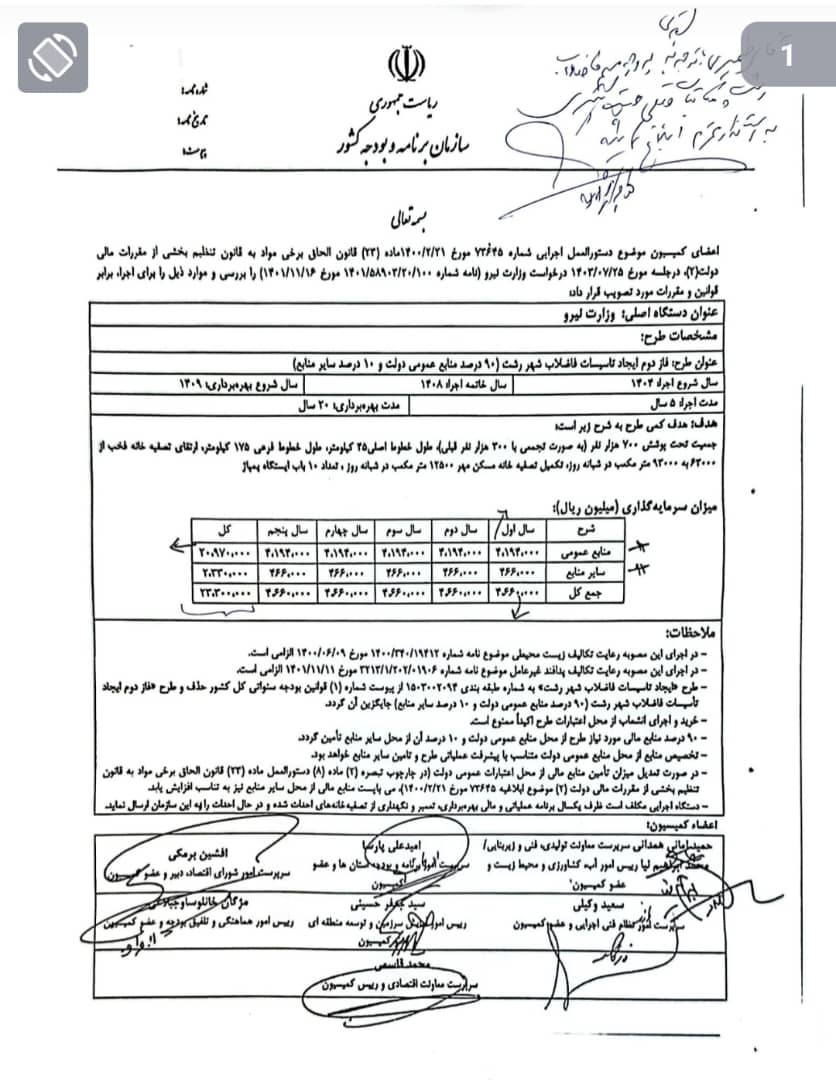 1
ریاست جمهوری
سازمان برنامه و بودجه کشور
شماره نامه:
تاریخ نامه:
پیوست:
بسمه تعالی
اعضای کمیسیون موضوع دستورالعمل اجرایی شماره ۷۳۶۴۵ مورخ ۱۴۰۰/۲/۲۱ماده (۲۳) قانون الحاق برخی مواد به قانون تنظیم بخشی از مقررات مالی
دولت(۲)، درجلسه مورخ ۱۴۰۳/۰۷/۲۵ درخواست وزارت نیرو (نامه شماره ۱۴۰۱/۵۸۹۰۲/۲۰/۱۰۰ مورخ ۱۴۰۱/۱۱/۱۶) را بررسی و موارد ذیل را برای اجرا، برابر
قوانین و مقررات مورد تصویب قرار داد:
عنوان دستگاه اصلی: وزارت نیرو
مشخصات طرح:
عنوان طرح: فاز دوم ایجاد تاسیسات فاضلاب شهر رشت (۹۰ درصد منابع عمومی دولت و ۱۰ درصد سایر منابع)
سال شروع اجرا: ۱۴۰۴ سال خاتمه اجرا: ۱۴۰۸ سال شروع بهره‌برداری: ۱۴۰۹
مدت اجرا: ۵ سال مدت بهره‌برداری: ۲۰ سال
هدف: هدف کمی طرح به شرح زیر است:
جمعیت تحت پوشش ۷۰۰ هزار نفر (به صورت تجمعی با ۳۰۰ هزار نفر قبلی)، طول خطوط اصلی۲۵ کیلومتر، طول خطوط فرعی ۱۷۵ کیلومتر، ارتقای تصفیه خانه فخب از
۶۲۰۰۰ به ۹۳۰۰۰ متر مکعب در شبانه روز، تکمیل تصفیه خانه مسکن مهر ۱۲۵۰۰ متر مکعب در شبانه روز ، تعداد ۱۰ باب ایستگاه پمپاژ
میزان سرمایه‌گذاری (میلیون ریال):
شرح سال اول سال دوم سال سوم سال چهارم سال پنجم کل
منابع عمومی ۴،۱۹۴،۰۰۰ ۴،۱۹۴،۰۰۰ ۴،۱۹۴،۰۰۰ ۴،۱۹۴،۰۰۰ ۴،۱۹۴،۰۰۰ ۲۰،۹۷۰،۰۰۰
سایر منابع ۴۶۶،۰۰۰ ۴۶۶،۰۰۰ ۴۶۶،۰۰۰ ۴۶۶،۰۰۰ ۴۶۶،۰۰۰ ۲،۳۳۰،۰۰۰
جمع کل ۴،۶۶۰،۰۰۰ ۴،۶۶۰،۰۰۰ ۴،۶۶۰،۰۰۰ ۴،۶۶۰،۰۰۰ ۴،۶۶۰،۰۰۰ ۲۳،۳۰۰،۰۰۰
ملاحظات:
– در اجرای این مصوبه رعایت تکالیف زیست محیطی موضوع نامه شماره ۱۴۰۰/۳۴۰/۱۹۴۱۲ مورخ ۱۴۰۰/۰۶/۰۹ الزامی است.
– در اجرای این مصوبه رعایت تکالیف پدافند غیرعامل موضوع نامه شماره ۲۲۱۳/۱/۲۰۲/۰۱۹۰۶ مورخ ۱۴۰۱/۱۱/۱۱ الزامی است.
– طرح «ایجاد تاسیسات فاضلاب شهر رشت» به شماره طبقه بندی ۱۵۰۳۰۰۲۰۹۴ از پیوست شماره (۱) قوانین بودجه سنواتی کل کشور حذف و طرح «فاز دوم ایجاد
تأسیسات فاضلاب شهر رشت (۹۰ درصد منابع عمومی دولت و ۱۰ درصد سایر منابع) جایگزین آن گردد.
– خرید و اجرای انشعاب از محل اعتبارات طرح اکیداً ممنوع است.
– ۹۰ درصد منابع مالی مورد نیاز طرح از محل منابع عمومی دولت و ۱۰ درصد آن از محل سایر منابع تأمین گردد.
– تخصیص منابع از محل منابع عمومی دولت متناسب با پیشرفت عملیاتی طرح و تامین سایر منابع خواهد بود.
– در صورت تعدیل میزان تأمین منابع مالی از محل اعتبارات عمومی دولت (در چارچوب تبصره (۲) ماده (۸) دستورالعمل ماده (۲۳) قانون الحاق برخی مواد به قانون
تنظیم بخشی از مقررات مالی دولت (۲) موضوع ابلاغیه ۷۳۶۴۵ مورخ ۱۴۰۰/۲/۲۱)، می بایست منابع مالی از محل سایر منابع نیز به تناسب افزایش یابد.
– دستگاه اجرایی مکلف است ظرف یکسال برنامه عملیاتی و مالی بهره‌برداری، تعمیر و نگهداری از تصفیه‌خانه‌های احداث شده و در حال احداث را به این سازمان ارسال نماید.
اعضاء کمیسیون:
حمید امانی همدانی سرپرست معاونت تولیدی، فنی و زیربنایی/
نیا رییس امور آب، کشاورزی و محیط زیست و
عضو کمیسیون
امیدعلی پارسا
سرپرست امور برنامه و بودجه استان ها و عضو
کمیسیون
افشین برمکی
سرپرست امور شورای اقتصاد، دبیر و عضو کمیسیون
سعید وکیلی
سرپرست امور نظام فنی اجرایی و عضو کمیسیون
سید جعفر حسینی
رییس امور آمایش سرزمین و توسعه منطقه ای
کمیسیون
مژگان خانلو
رییس امور هماهنگی و تلفیق بودجه و عضو کمیسیون
محمد قاسمی
سرپرست معاونت اقتصادی و رییس کمیسیون